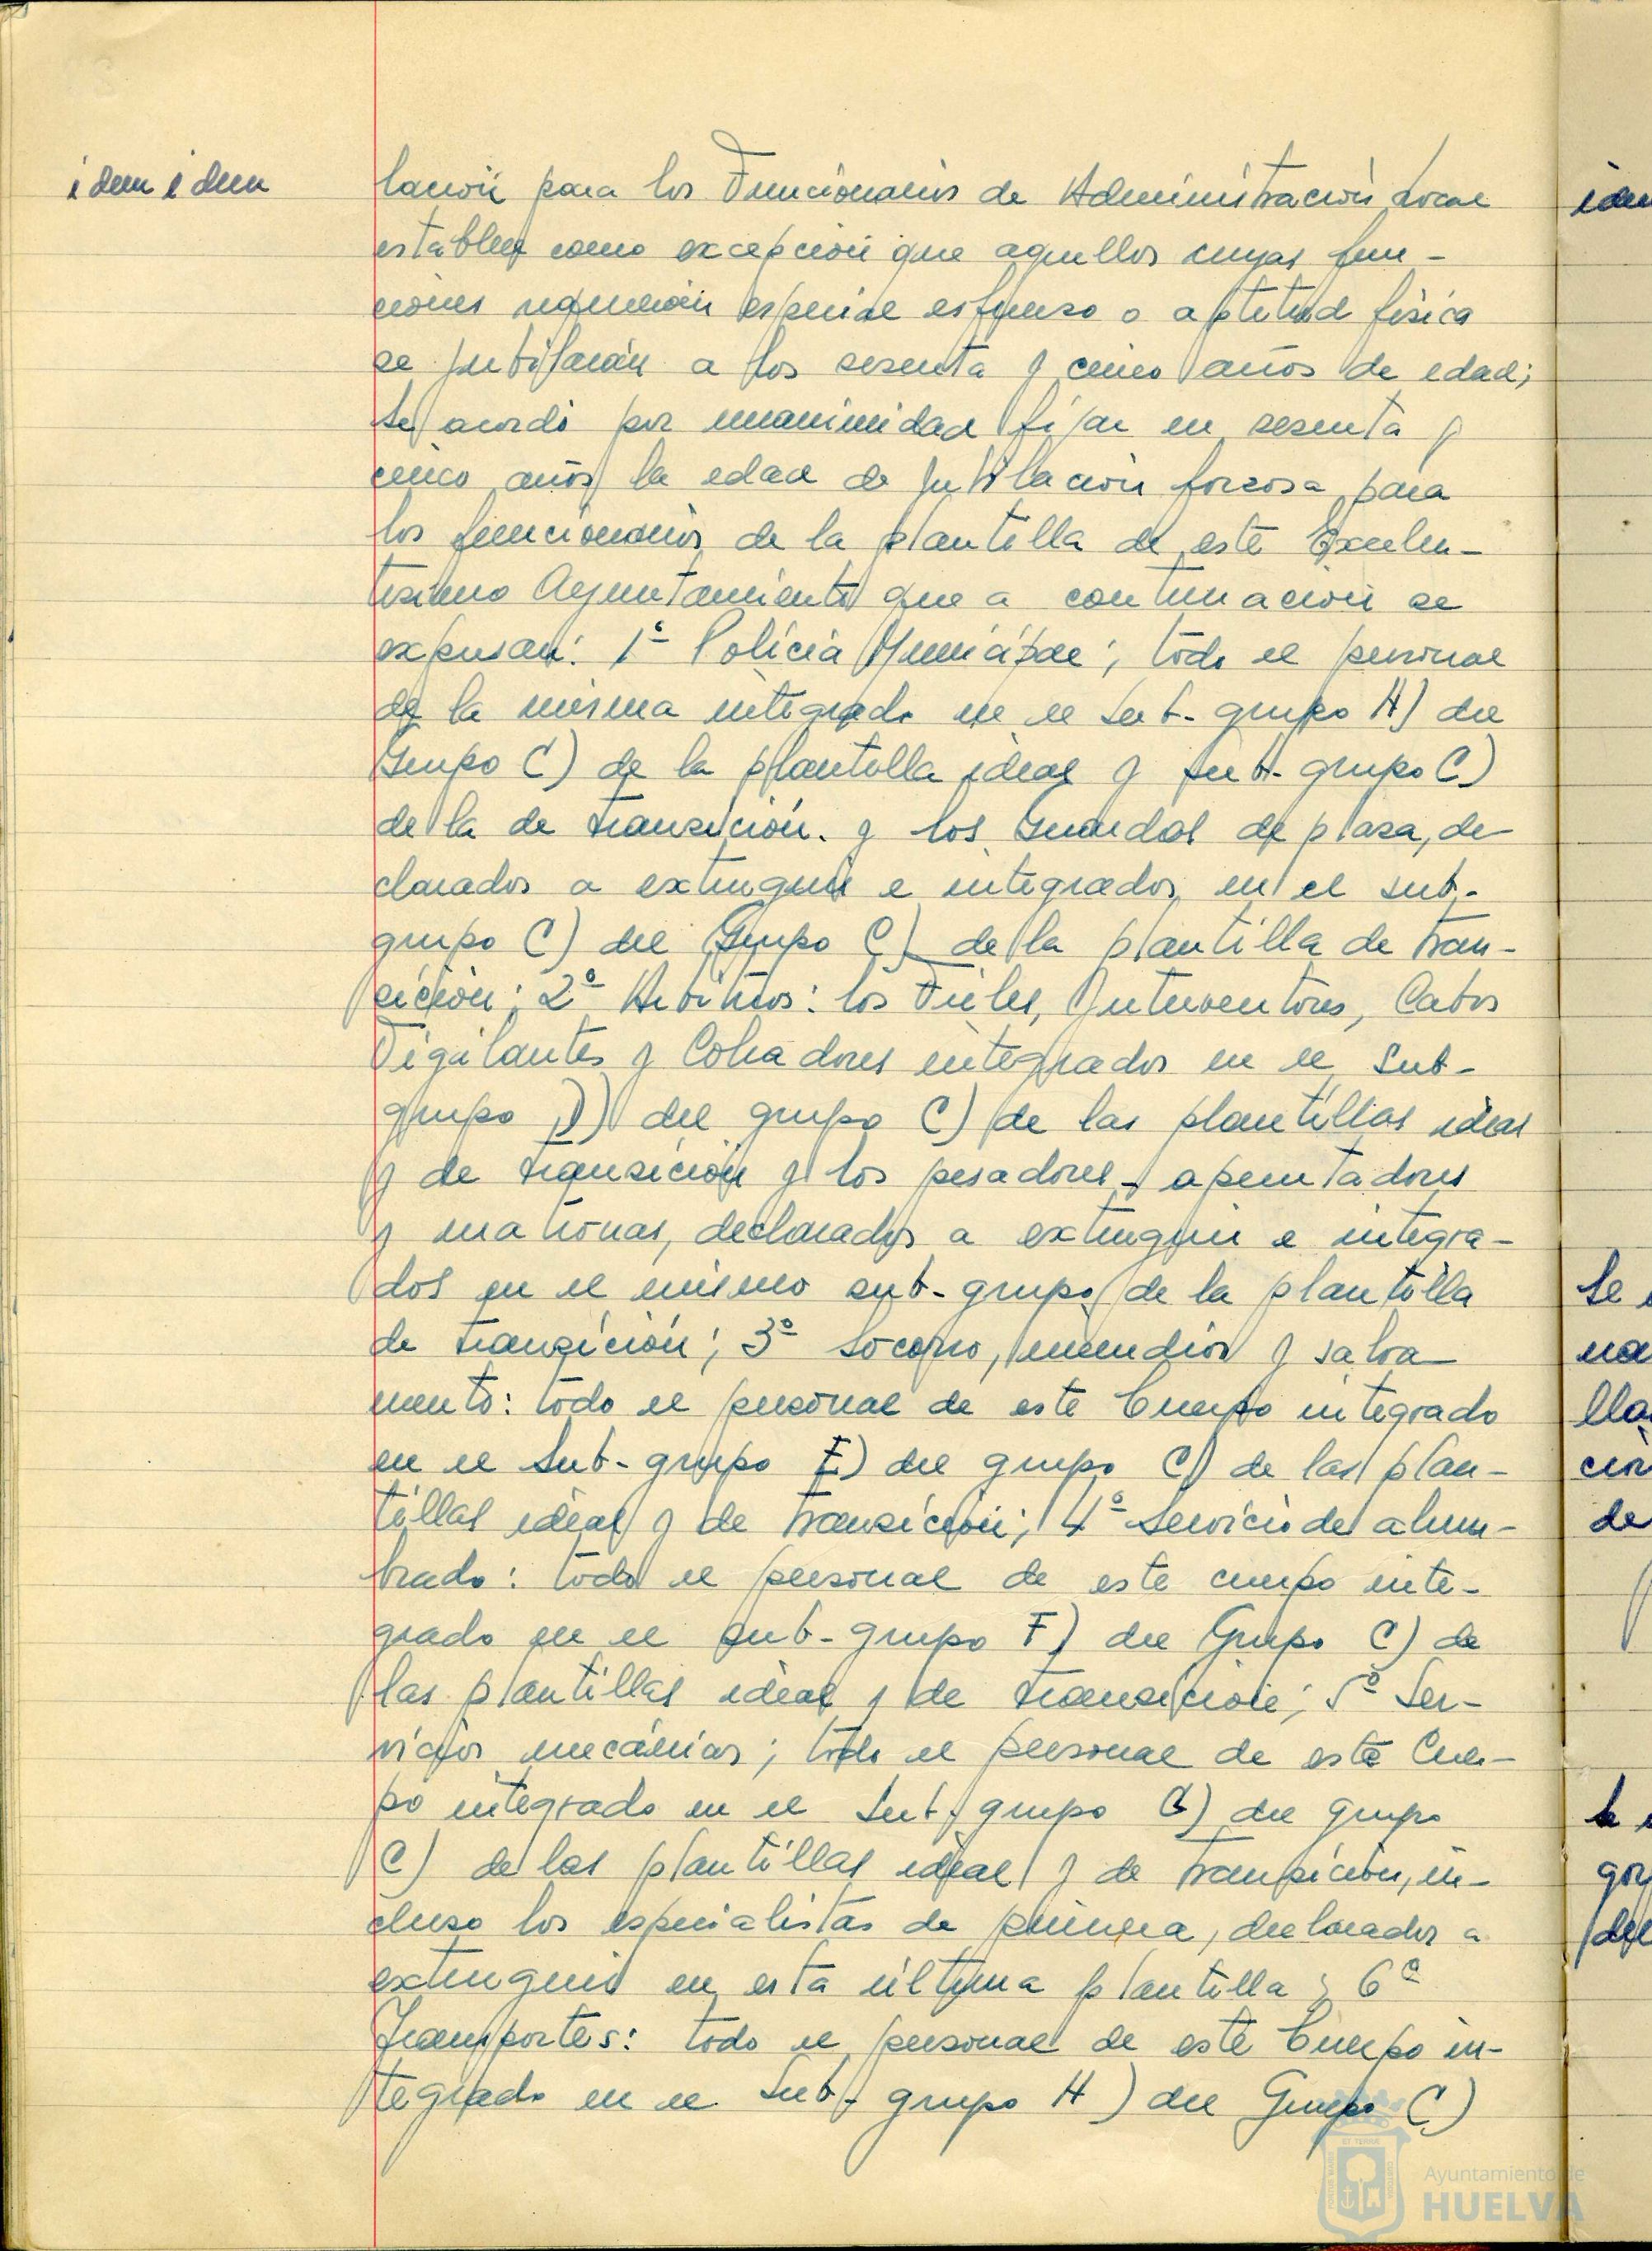 idem idem
lación para los Funcionarios de Administración Local
establece como excepción que aquellos cuyas fun-
ciones requieran especial esfuerzo o aptitud física
se jubilarán a los sesenta y cinco años de edad;
se acordó por unanimidad fijar en sesenta y
cinco años la edad de jubilación forzosa para
los funcionarios de la plantilla de este Excelen-
tísimo Ayuntamiento que a continuación se
expresan: 1º Policía Municipal; todo el personal
de la misma integrado en el Sub-grupo A) del
Grupo C) de la plantilla ideal y sub-grupo C)
de la de transición. y los Guardas de plaza, de-
clarados a extinguir e integrados en el sub-
grupo C) del Grupo C) de la plantilla de tran-
sición; 2º Arbitrios: los Fieles, Interventores, Cabos
Vigilantes y Cobradores integrados en el Sub-
grupo D) del grupo C) de las plantillas ideal
y de transición y los pesadores-apuntadores
y matronas, declarados a extinguir e integra-
dos en el mismo sub-grupo de la plantilla
de transición; 3º Socorro, incendios y salva-
mento: todo el personal de este Cuerpo integrado
en el Sub-grupo E) del grupo C) de las plan-
tillas ideal y de transición; 4º Servicio de alum-
brado: todo el personal de este cuerpo inte-
grado en el sub-grupo F) del Grupo C) de
las plantillas ideal y de transición; 5º Ser-
vicios mecánicos; todo el personal de este Cuer-
po integrado en el Sub-grupo G) del grupo
C) de las plantillas ideal y de transición, in-
cluso los especialistas de primera, declarados a
extinguir en esta última plantilla; 6º
Transportes: todo el personal de este Cuerpo in-
tegrado en el Sub-grupo H) del Grupo C)
Se
na
lla
de
Ayuntamiento de
HUELVA